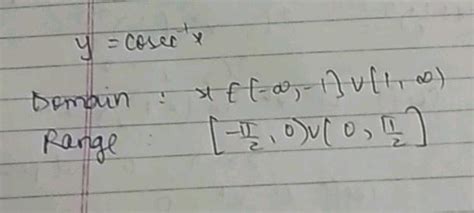 y = cosec⁻¹x
Domain : x ∈ (-∞, -1] ∪ [1, ∞)
Range : [-π/2, 0) ∪ (0, π/2]